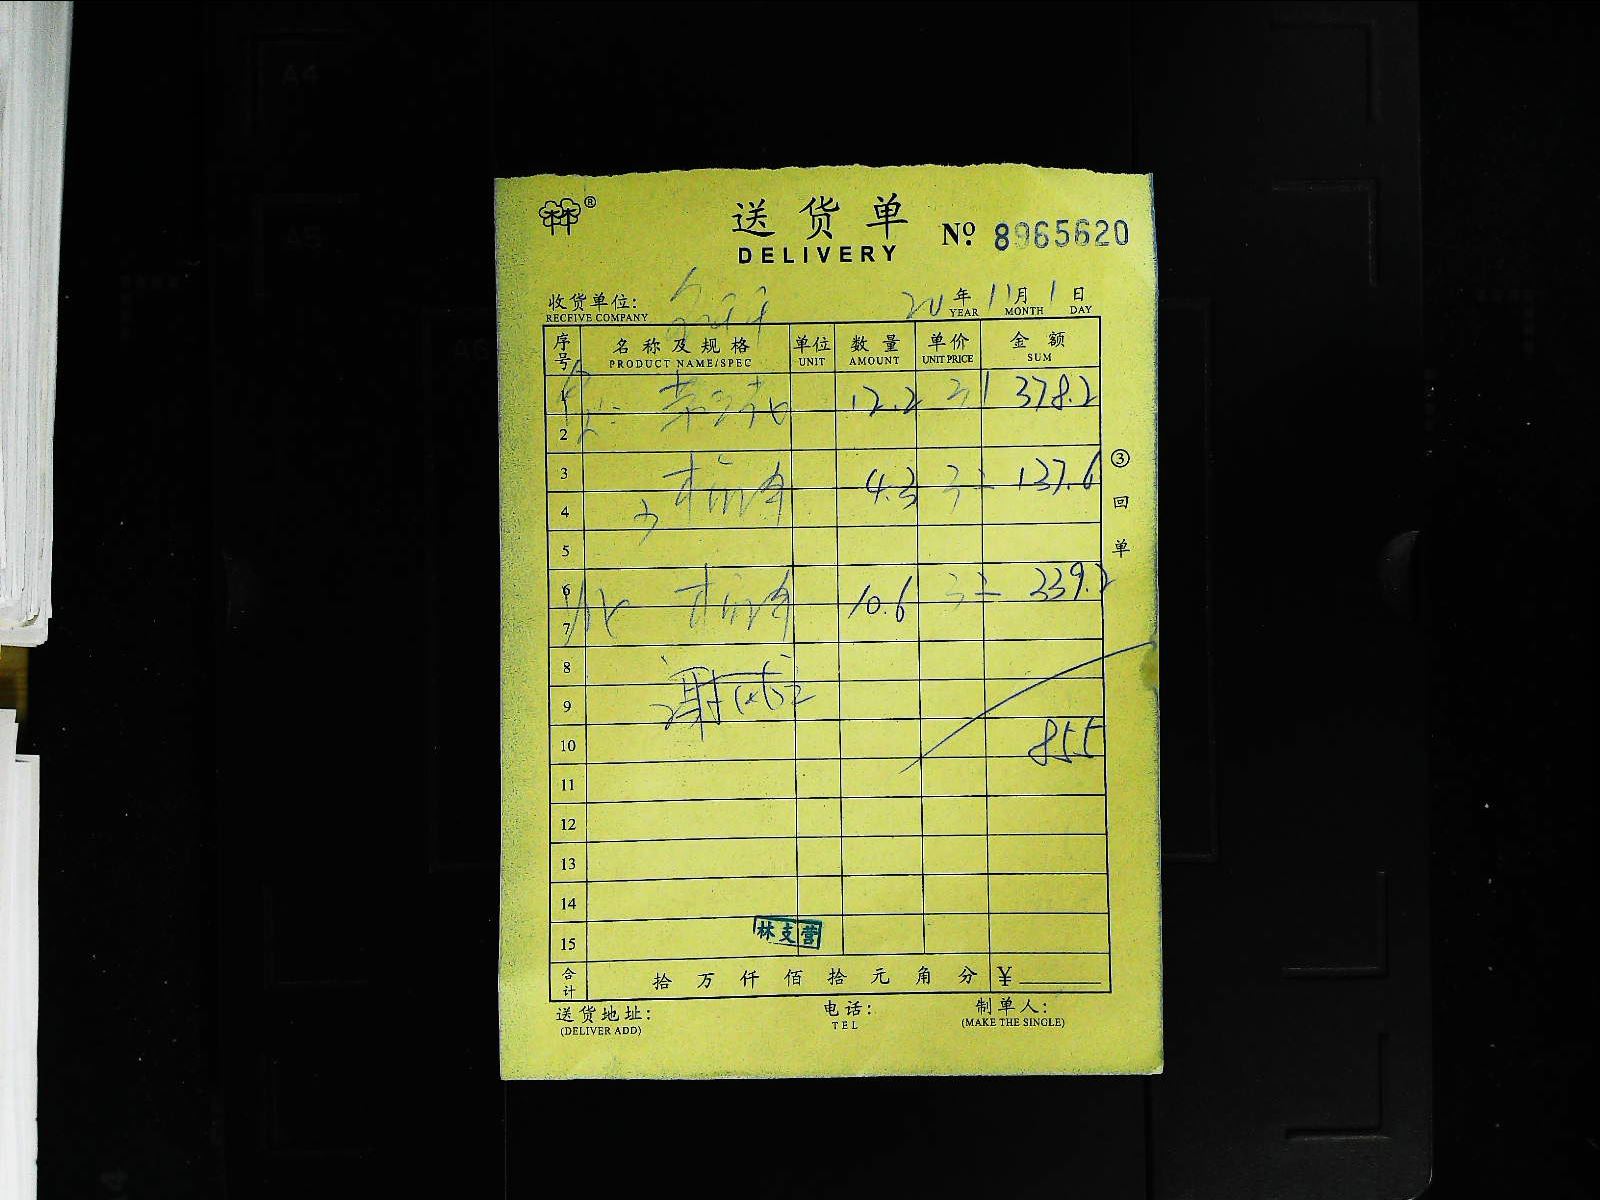 A4
A5
林®
送货单
DELIVERY
No. 8965620
收货单位:
RECFIVE COMPANY
20 年 11 月 1 日
YEAR MONTH DAY
序号 名称及规格 单位 数量 单价 金额
PRODUCT NAME/SPEC UNIT AMOUNT UNIT PRICE SUM
1 12.2 31 378.2
2
3 4.3 32 137.6
4
5
6 10.6 32 339.2
7
8
9 谢
10 855
11
12
13
14
15 林支营
合计 拾 万 仟 佰 拾 元 角 分 ¥
送货地址: 电话: 制单人:
(DELIVER ADD) TEL (MAKE THE SINGLE)
③回单